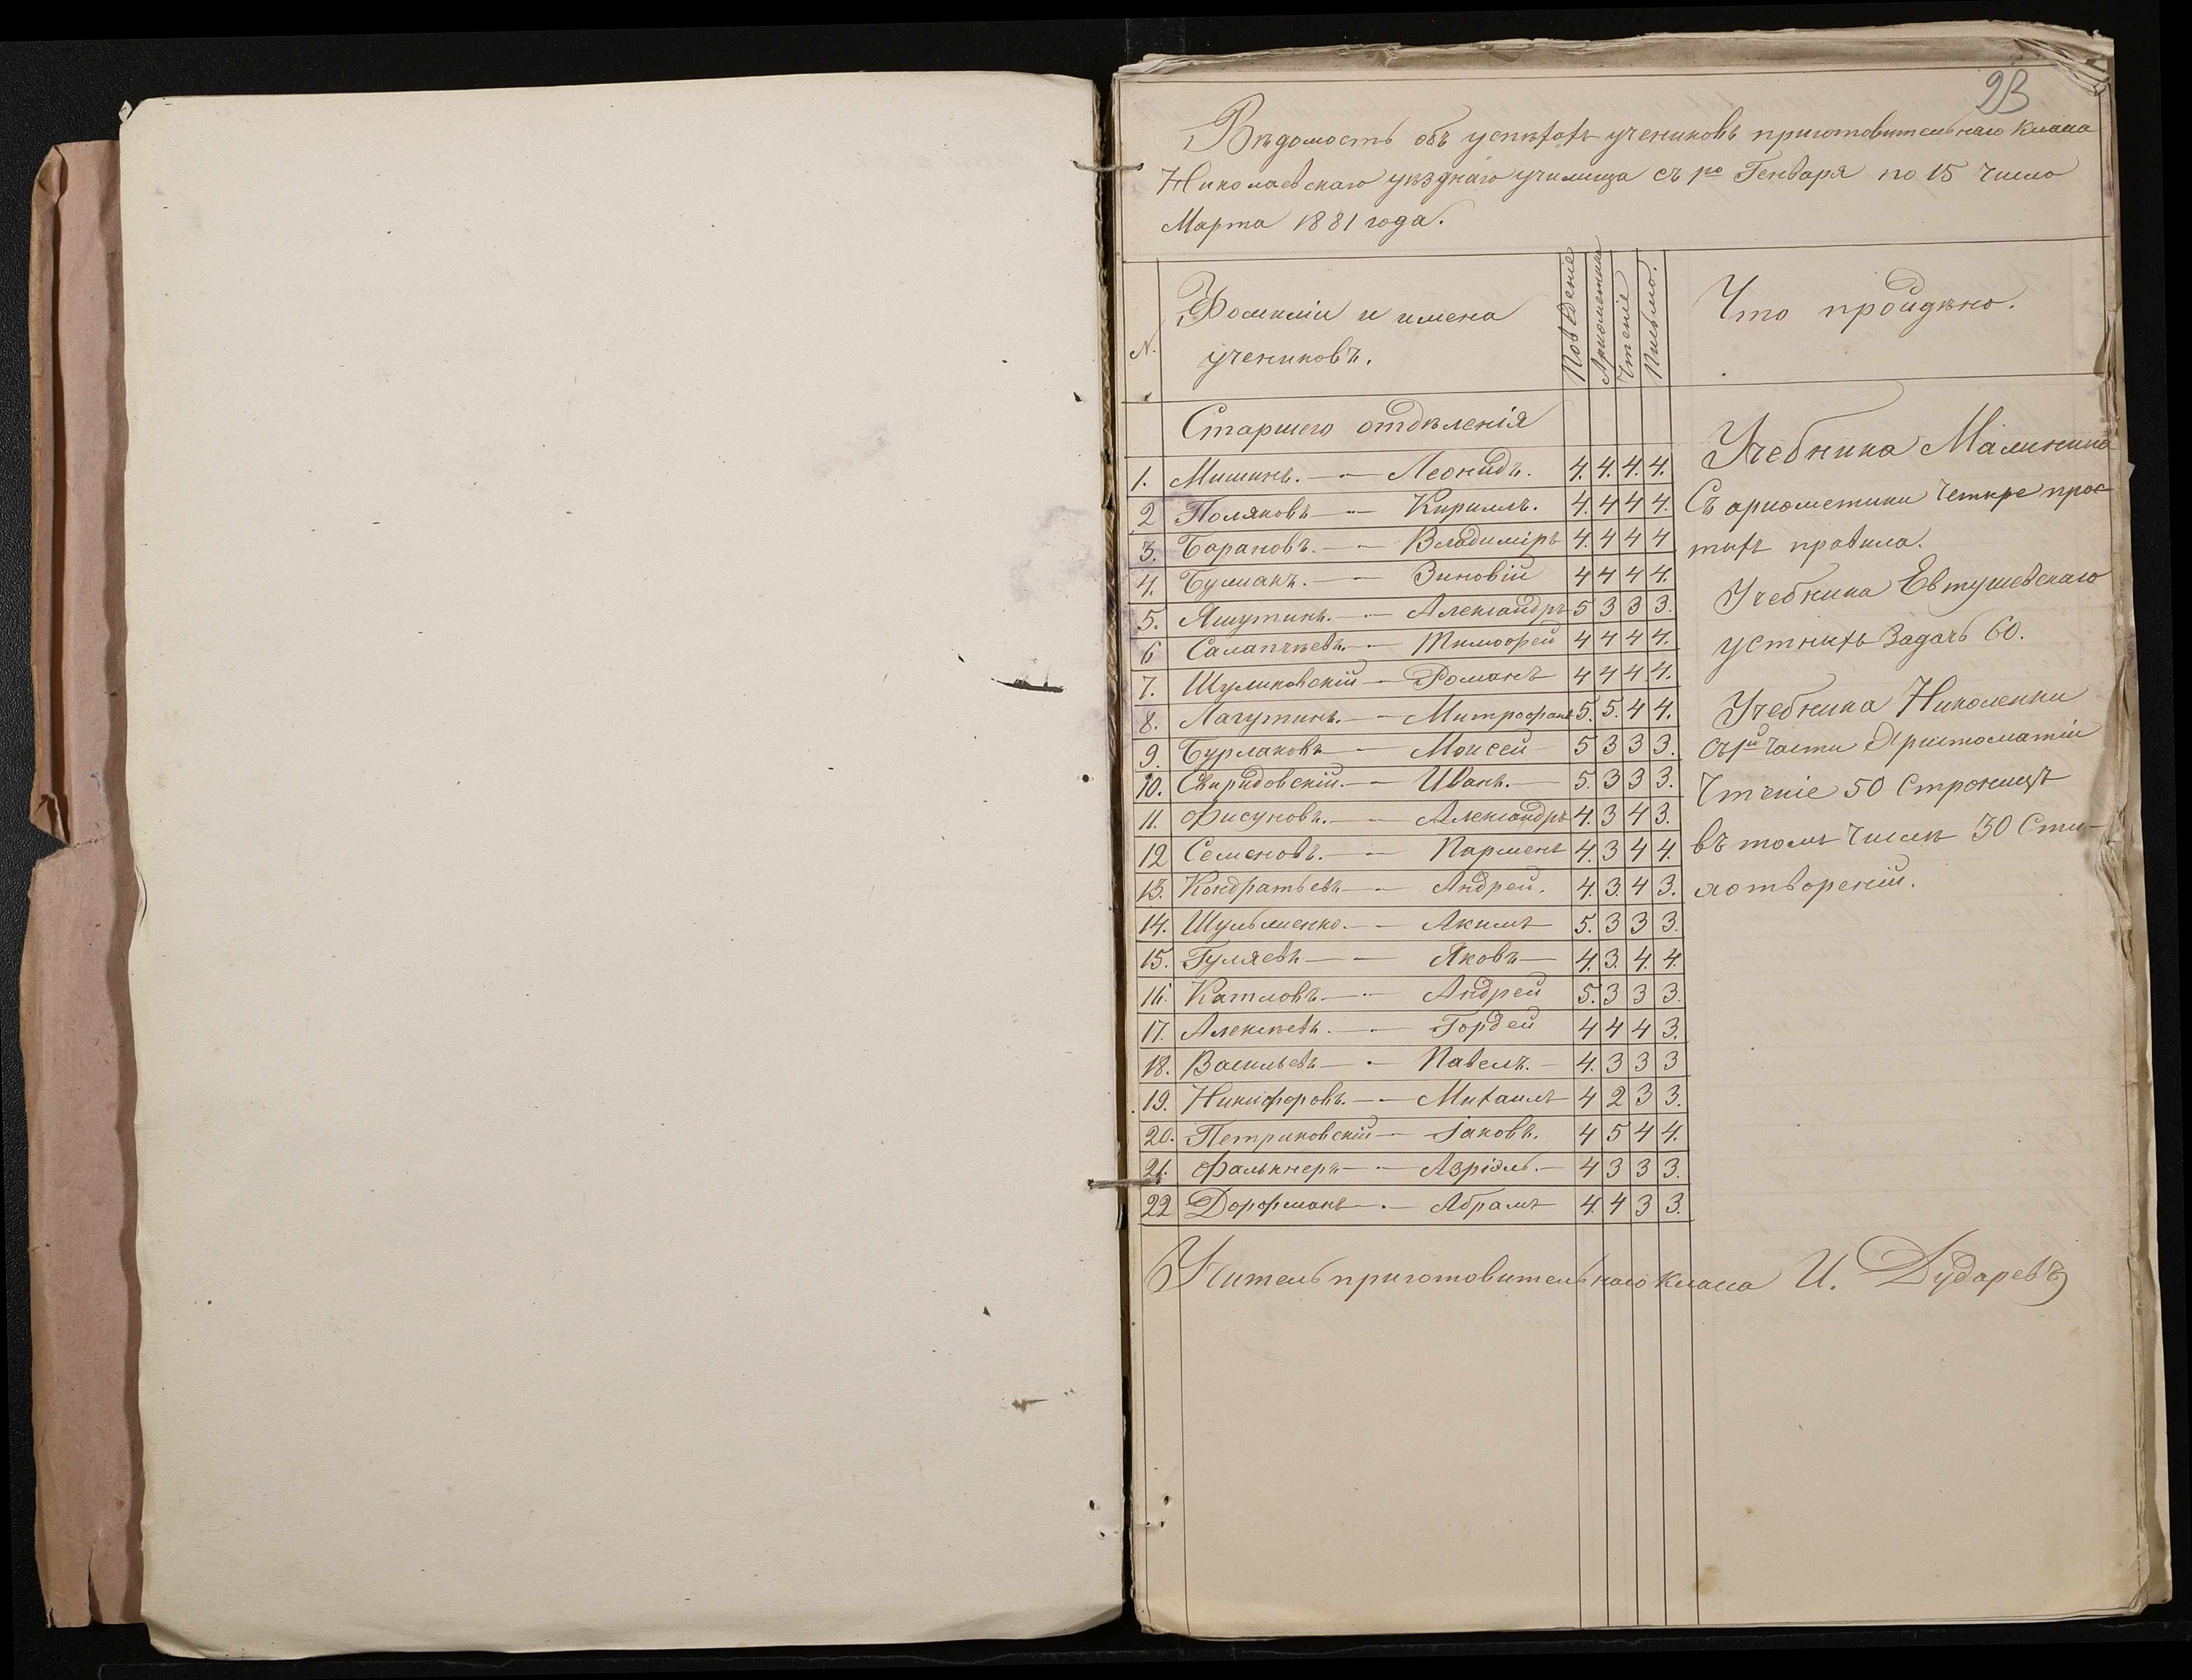 23
Вѣдомость объ успѣхахъ учениковъ приготовительнаго класа
Николаевскаго уѣзднаго училища съ 1го Генваря по 15 число
Марта 1881 года.
N. Фомиліи и имена учениковъ. Поведеніе Арифметики Чтеніе Письмо. Что пройдѣно.
Старшего отдѣленія
1. Мишинъ. Леонидъ. 4. 4. 4. 4.
2 Поляковъ Кириллъ. 4. 4 4 4.
3. Барановъ. Владиміръ 4. 4 4 4
4. Булмакъ. Зиновій 4 4 4 4.
5. Яшутинъ. Александръ 5 3 3 3.
6 Салапчѣевъ. Тимофей 4 4 4 4.
7. Шуликовскій Романъ 4 4 4 4.
8. Лагутинъ. Митрофанъ 5. 5. 4 4.
9. Бурлаковъ Моисей 5 3 3 3.
10. Свиридовскій. Иванъ. 5. 3 3 3.
11. Фисуновъ. Александръ 4. 3 4 3.
12 Семеновъ. Парменъ 4. 3 4 4.
13. Кондратьевъ Андрей. 4. 3. 4 3.
14. Шульменко. Акимъ 5. 3 3 3.
15. Гуляевъ Яковъ 4. 3. 4. 4.
16. Катловъ Андрей 5. 3 3 3.
17. Алексѣевъ. Гордей 4 4 4 3.
18. Васильевъ Павелъ. 4. 3 3 3
19. Никифоровъ. Михаилъ 4 2 3 3.
20. Петриковскій Іаковъ. 4 5 4 4.
21. Фалькнеръ Азріэль. 4 3 3 3.
22 Дорфманъ Абрамъ 4. 4 3 3.
Учебника Малинина
Съ арифметики Четыре прос-
тыхъ правила.
Учебника Евтушевскаго
устныхъ Задачъ 60.
Учебника Николенки
съ 1й части Христоматіи
Чтеніе 50 Страницъ
въ томъ Числѣ 30 Сти-
хотвореній.
Учитель приготовительнаго класа И. Дударевъ